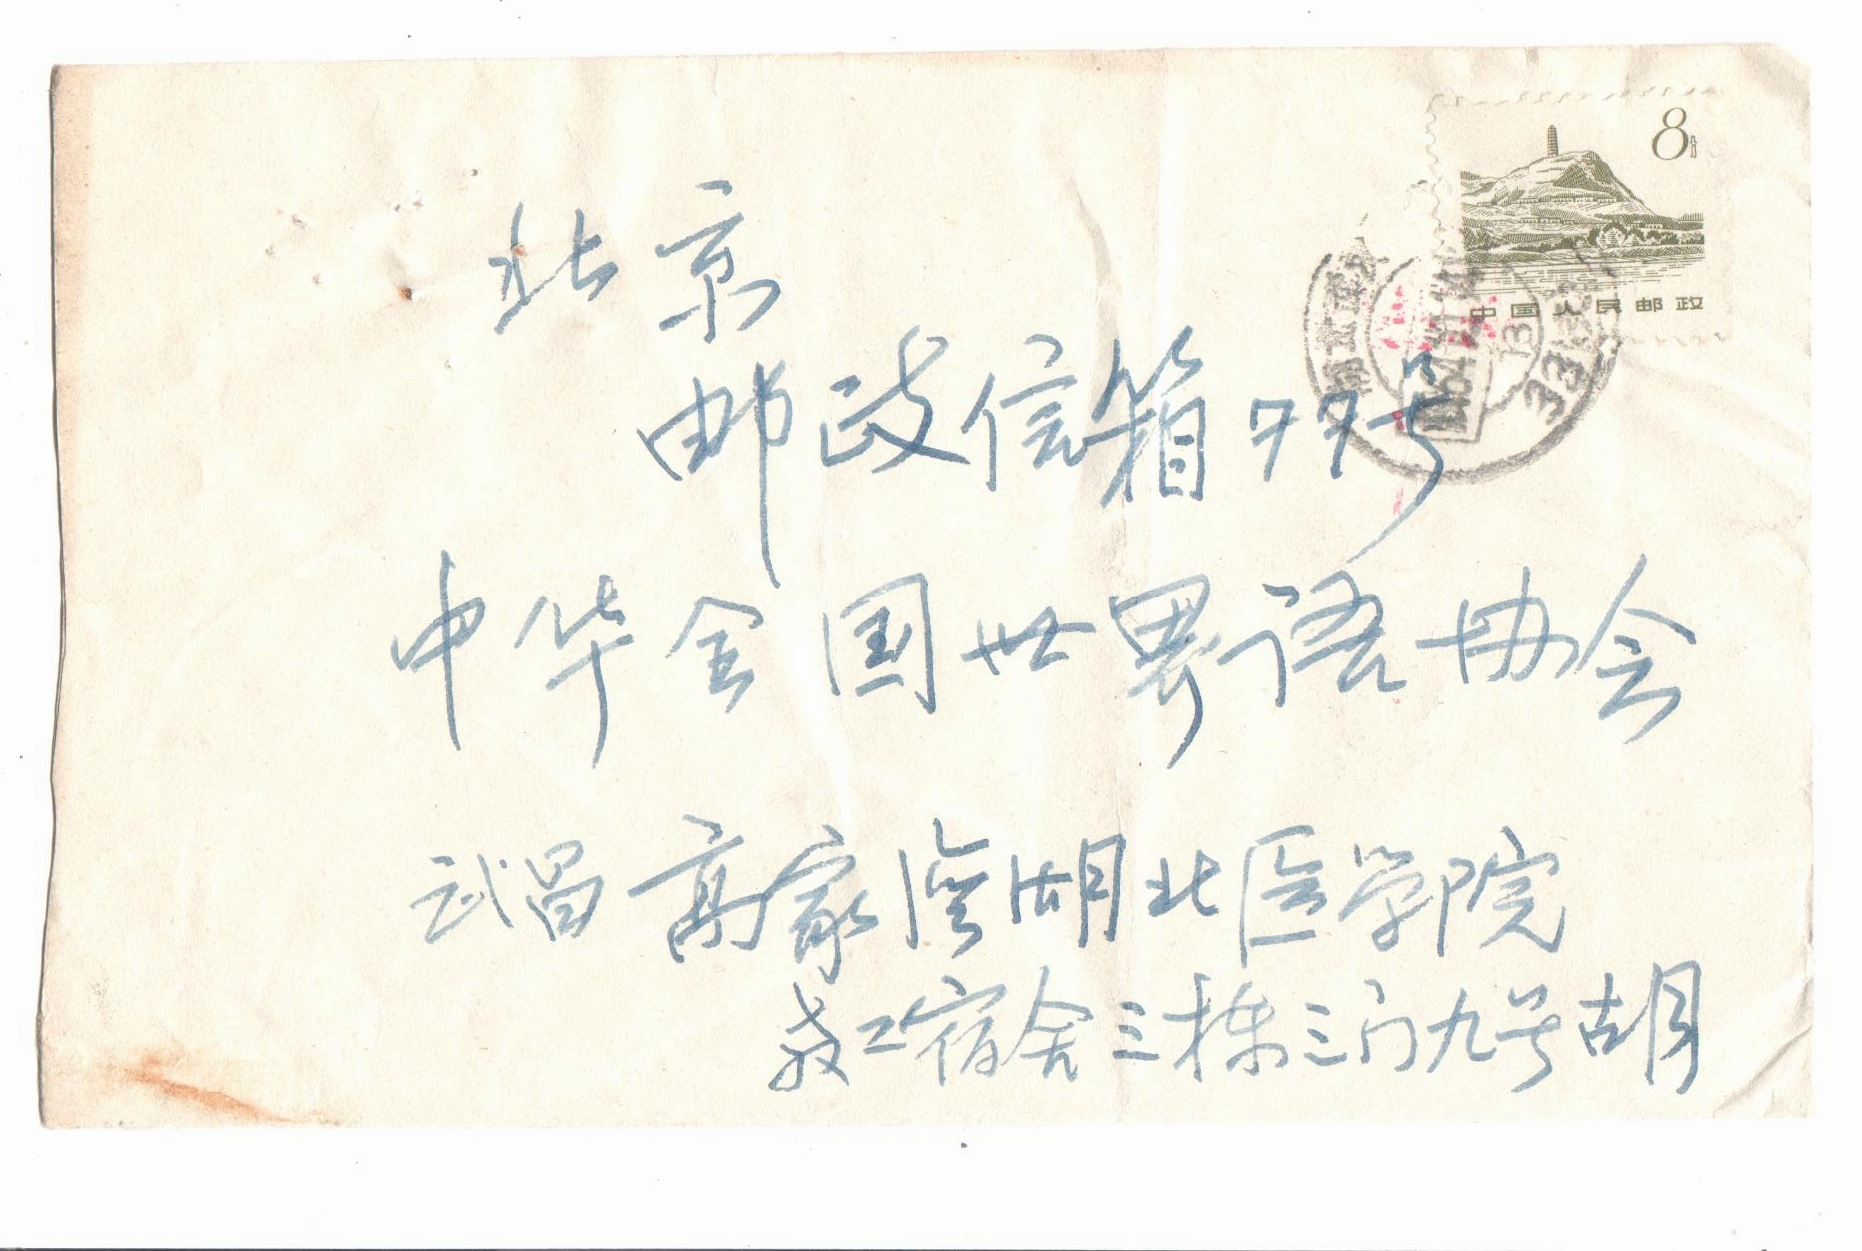 8分
中国人民邮政
北京
邮政信箱77号
中华全国世界语协会
武昌高家湾湖北医学院
教工宿舍三栋三门九号胡